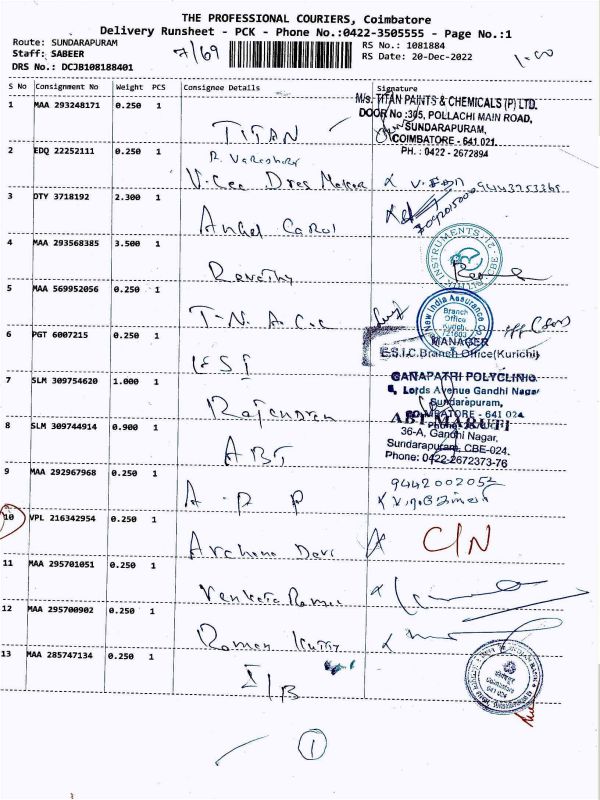 THE PROFESSIONAL COURIERS, Coimbatore
Delivery Runsheet - PCK - Phone No.:0422-3505555 - Page No.:1
Route: SUNDARAPURAM
Staff: SABEER
DRS No.: DCJB108188401
7/69
RS No.: 1081884
RS Date: 20-Dec-2022
1-00
S No Consignment No Weight PCS Consignee Details Signature
1 MAA 293248171 0.250 1 TITAN
M/s. TITAN PAINTS & CHEMICALS (P) LTD.
DOOR No :305, POLLACHI MAIN ROAD,
SUNDARAPURAM,
COIMBATORE - 641 021.
PH. : 0422 - 2672894
2 EDQ 22252111 0.250 1
3 DTY 3718192 2.300 1 Angel Carol
4 MAA 293568385 3.500 1 Revathy
INSTRUMENTS
CBE
5 MAA 569952056 0.250 1 T.N. A C.C
New India Assurance Co.
Branch
Office
6 PGT 6007215 0.250 1 ESI
MANAGER
E.S.I.C.Branch Office(Kurichi)
7 SLM 309754620 1.000 1 Rajendren
GANAPATHI POLYCLINIC
Lords Avenue Gandhi Nagar
Sundarapuram,
COIMBATORE - 641 024.
8 SLM 309744914 0.900 1 ABT
ABT MARUTI
36-A, Gandhi Nagar,
Sundarapuram, CBE-024.
Phone: 0422-2672373-76
9 MAA 292967968 0.250 1 A.P P
9442002052
10 VPL 216342954 0.250 1 Archana Devi C/N
11 MAA 295701051 0.250 1 Venkata Raman
12 MAA 295700902 0.250 1 Raman Kutty
13 MAA 285747134 0.250 1 I/B
1